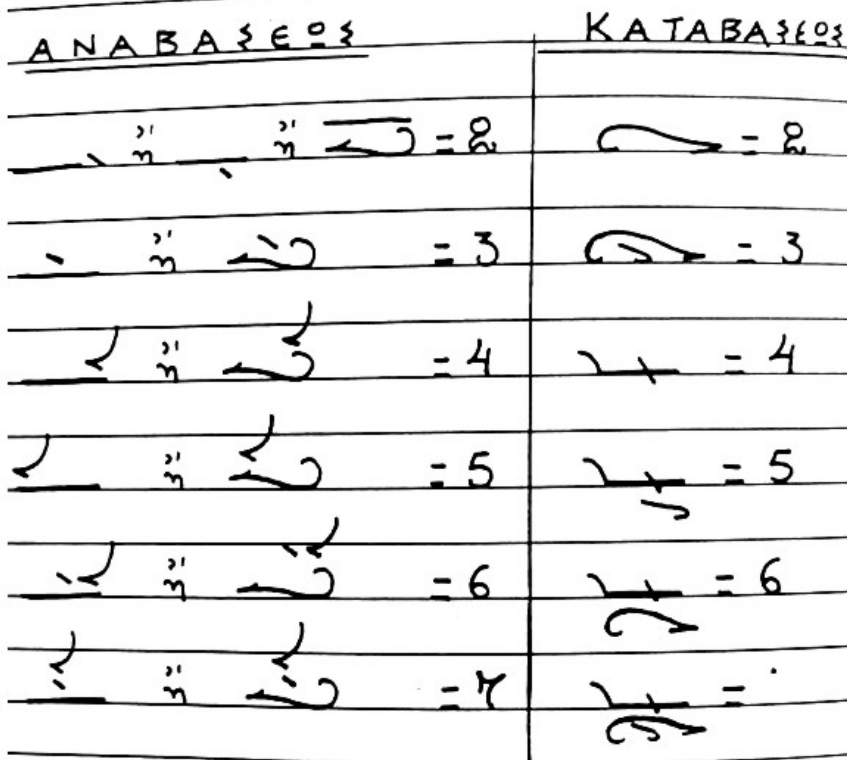 ΑΝΑΒΑΣΕΩΣ ΚΑΤΑΒΑΣΕΩΣ
ἤ ἤ = 2 = 2
ἤ = 3 = 3
ἤ = 4 = 4
ἤ = 5 = 5
ἤ = 6 = 6
ἤ = 7 =